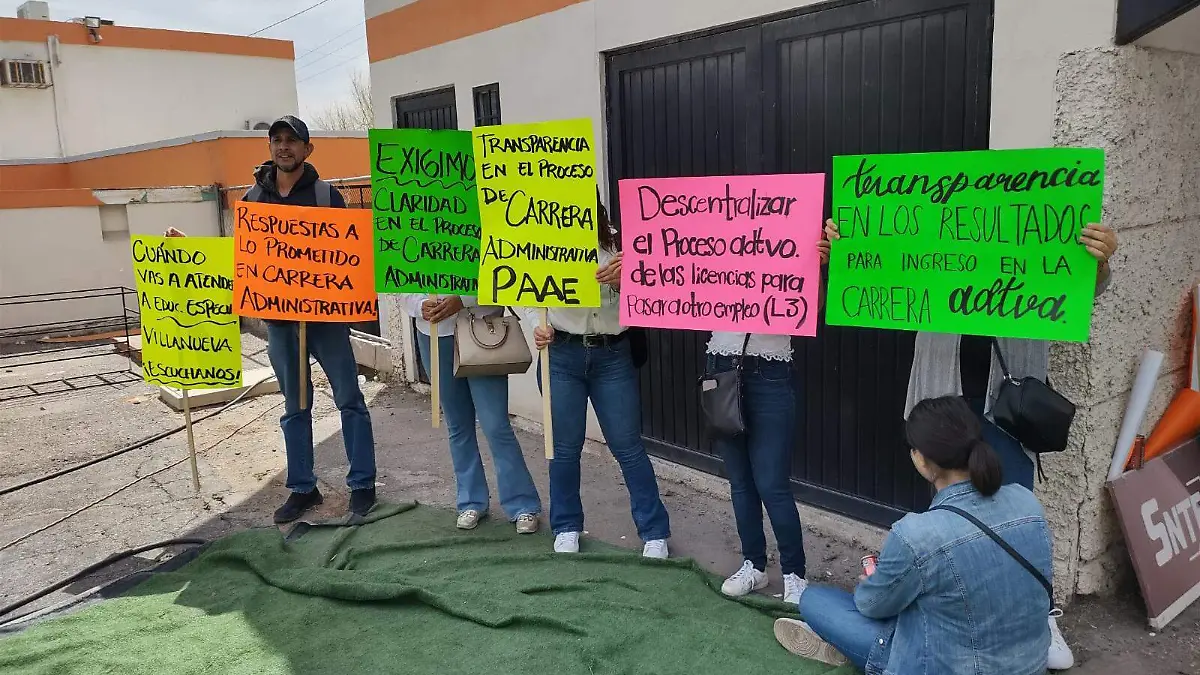 CUÁNDO
VAS A ATENDE
A EDUC. ESPECIAL
VILLANUEVA
¡ESCUCHANOS!
RESPUESTAS A
LO PROMETIDO
EN CARRERA
ADMINISTRATIVA!
EXIGIMO
CLARIDAD
EN EL PROCESO
DE CARRERA
ADMINISTRATI
TRANSPARENCIA
EN EL PROCESO
DE CARRERA
ADMINISTRATIVA
PAAE
Descentralizar
el Proceso adtvo.
de las licencias para
Pasar a otro empleo (L3)
transparencia
EN LOS RESULTADOS
PARA INGRESO EN LA
CARRERA adtva.
SNTE